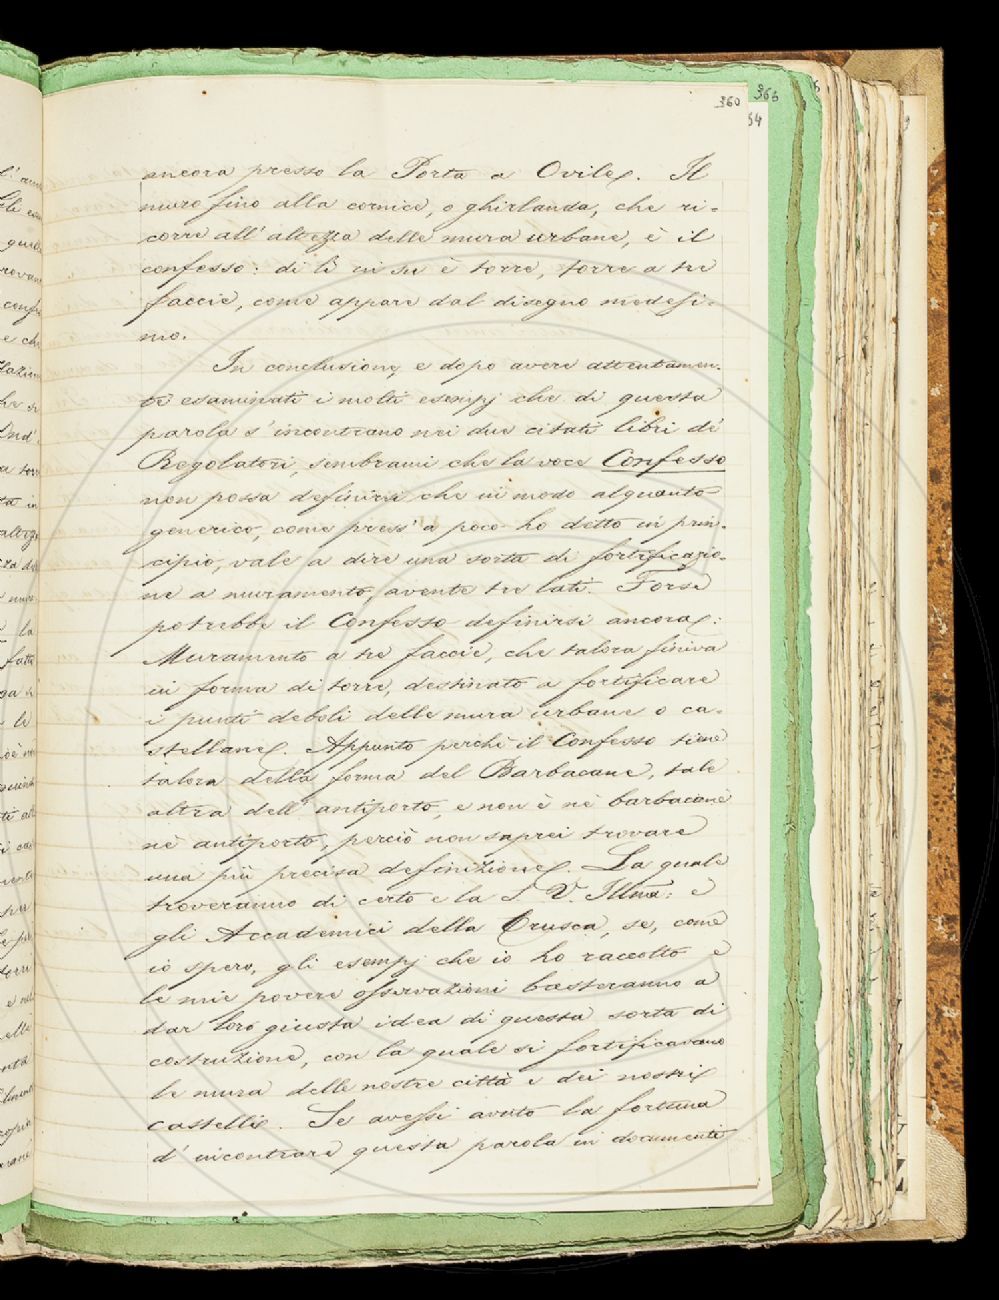 360 366
54
ancora presso la Porta a Ovile. Il
muro fino alla cornice, o ghirlanda, che ri-
corre all'altezza delle mura urbane, è il
confesso: di lì in su è torre, torre a tre
faccie, come appare dal disegno medesi-
mo.
In conclusione, e dopo avere attentamen-
te esaminati i molti esempj che di questa
parola s'incontrano nei due citati libri de'
Regolatori, sembrami che la voce Confesso
non possa definirsi che in modo alquanto
generico, come press'a poco ho detto in prin-
cipio, vale a dire una sorta di fortificazio-
ne a muramento, avente tre lati. Forse
potrebbe il Confesso definirsi ancora:
Muramento a tre faccie, che talora finiva
in forma di torre, destinato a fortificare
i punti deboli delle mura urbane o ca-
stellane. Appunto perchè il Confesso tiene
talora della forma del Barbacane, tale
altra dell'antiporto, e non è nè barbacane
nè antiporto, perciò non saprei trovare
una più precisa definizione. La quale
troveranno di certo e la S. V. Illma: e
gli Accademici della Crusca, se, come
io spero, gli esempj che io ho raccolto e
le mie povere osservazioni basteranno a
dar loro giusta idea di questa sorta di
costruzione, con la quale si fortificavano
le mura delle nostre città e dei nostri
castelli. Se avessi avuto la fortuna
d'incontrare questa parola in documenti